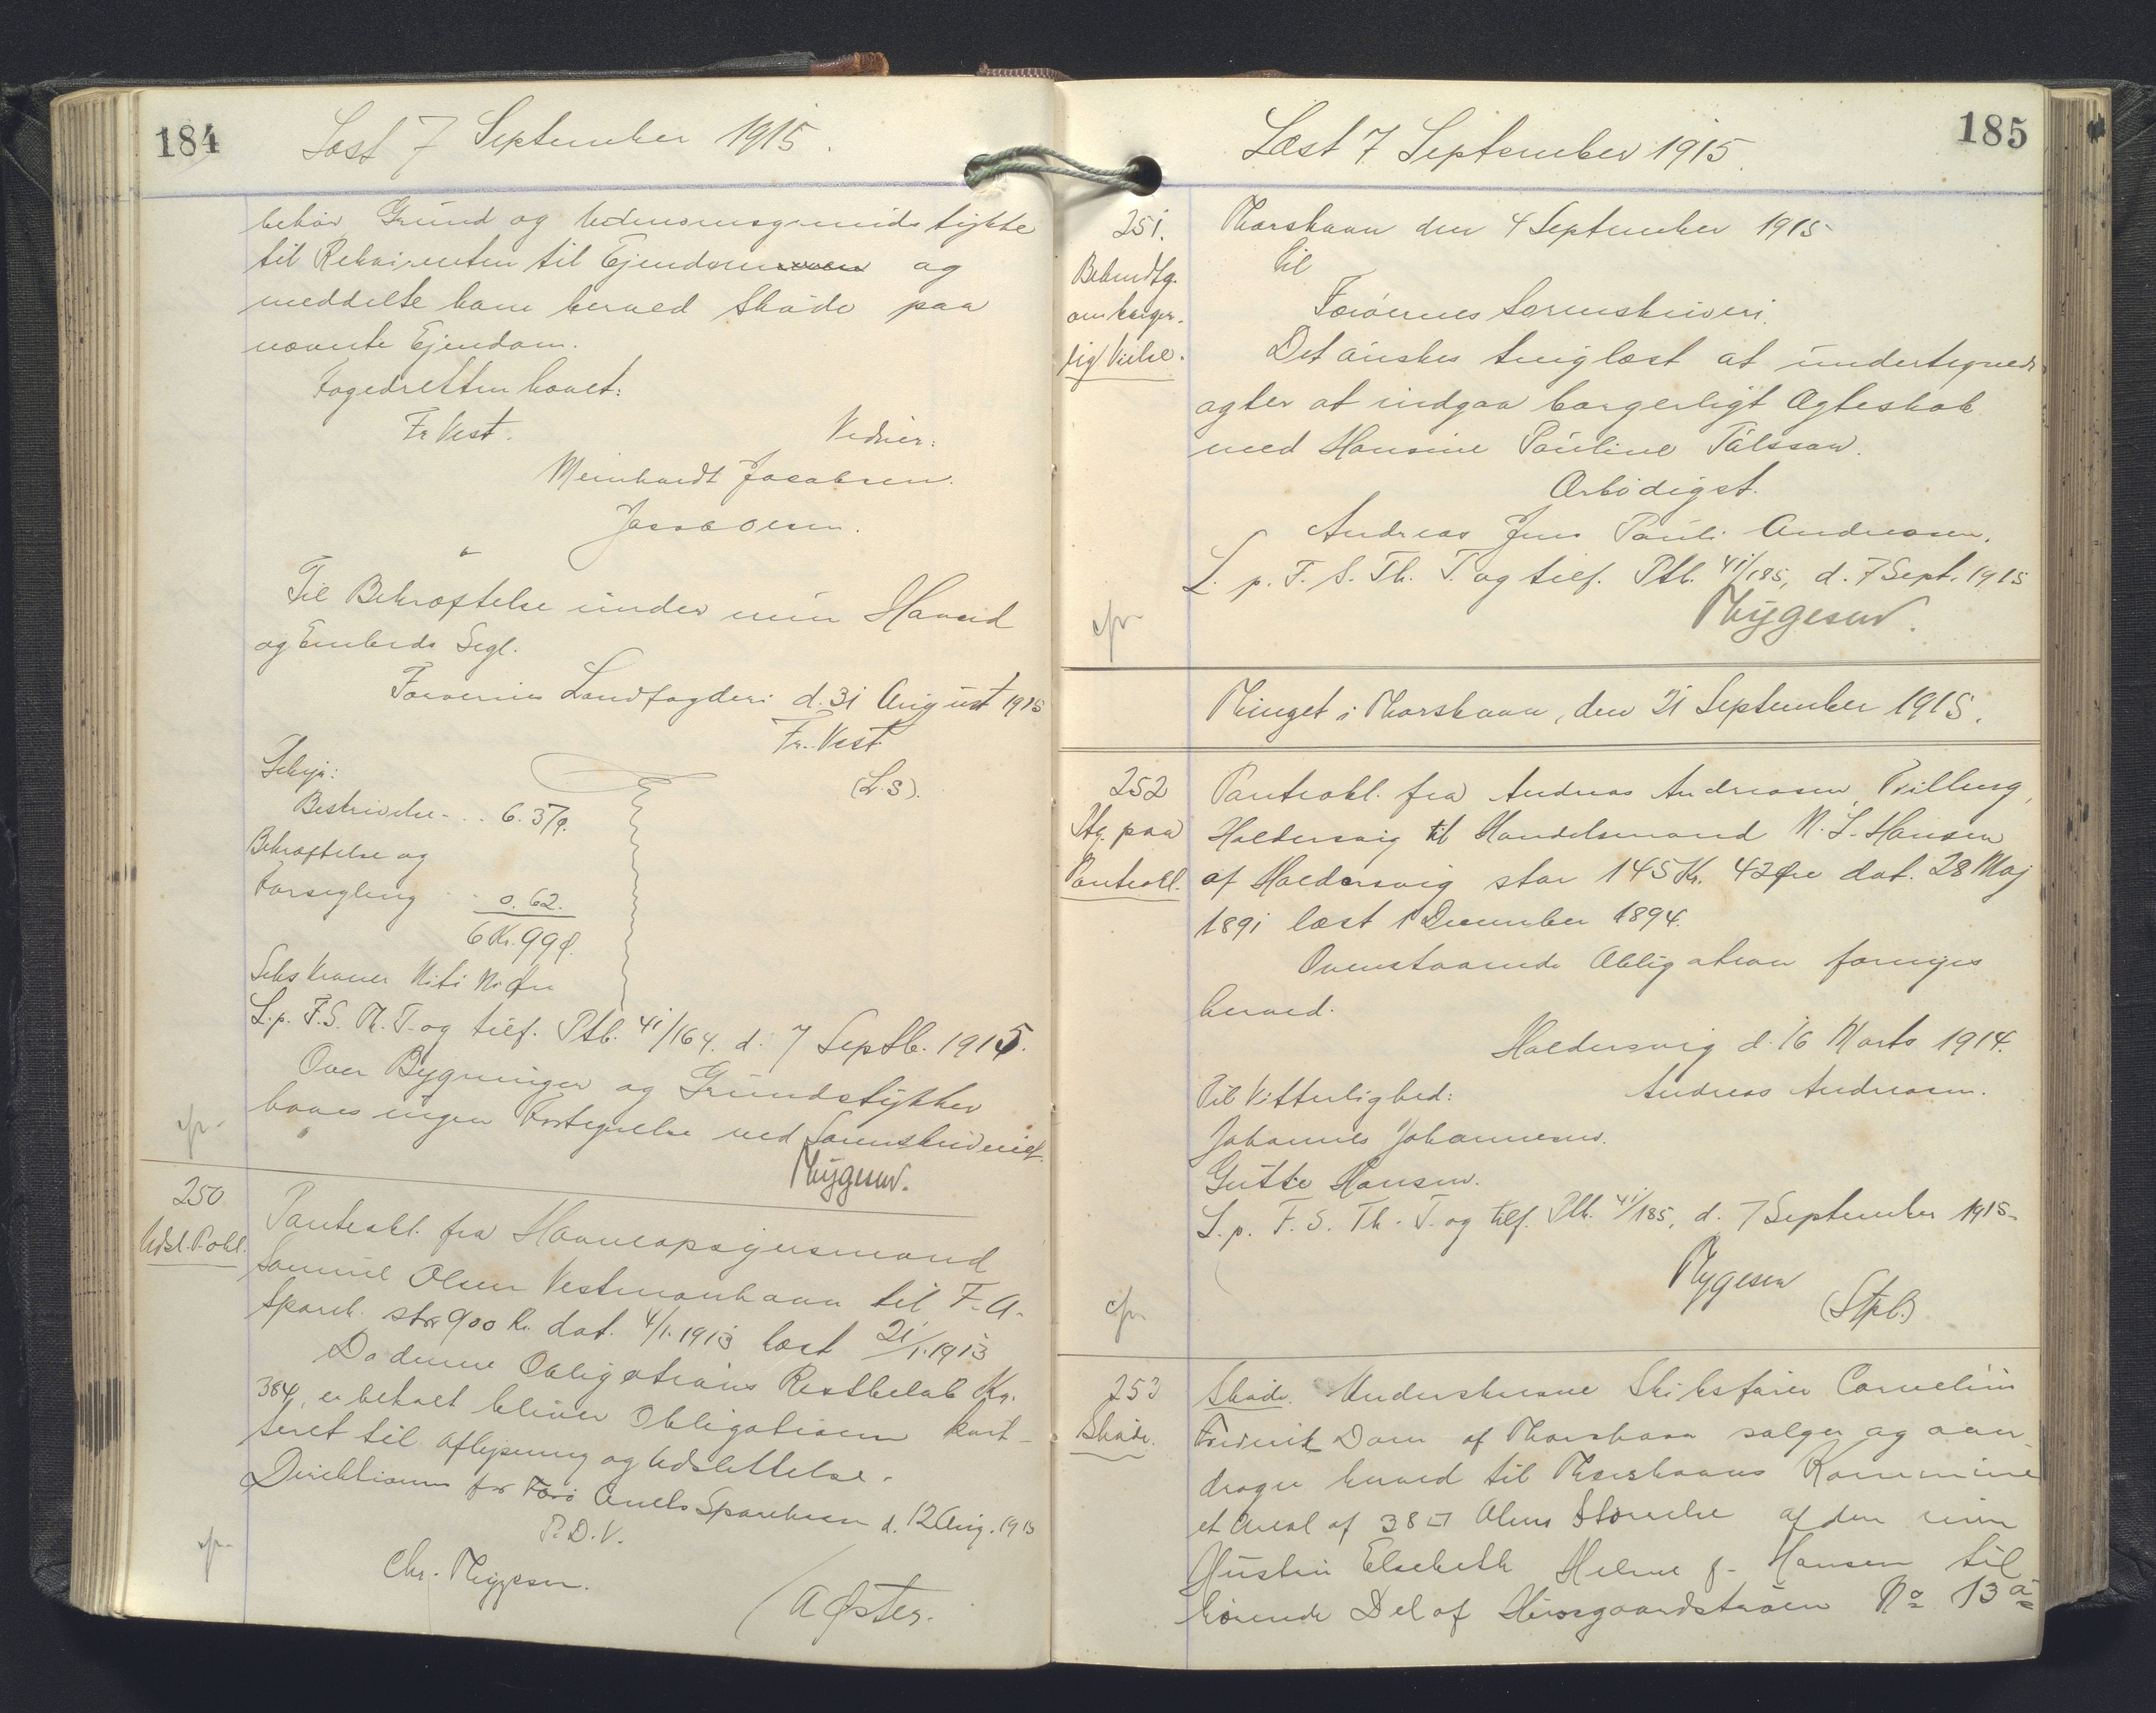 184
Læst 7 September 1915.
behør Grund og Udmarksgrundstykke
til Rekvirenten til Ejendom og
meddelte ham herved Skøde paa
nævnte Ejendom.
Fogedretten hævet:
Fr Vest. Vidner:
Meinhardt Jacobsen.
Jacob Olsen.
Til Bekræftelse under min Haand
og Embeds Segl.
Færøernes Landfogderi d. 31 August 1915
Fr. Vest
(L.S).
Gebyr:
Beskrivelse - . . 6. 37ø.
Bekræftelse og
Forsegling - - 0. 62.
6 Kr. 99 ø.
Seks Kroner Niti Ni Øre
L.p. F.S. Th. T. og tilf. Ptb. 41/164. d. 7 Septb. 1915.
Over Bygninger og Grundstykker
haves ingen Fortegnelse ved Sorenskriveriet.
Thygesen.
250
Udsl. P. obl.
Panteobl. fra Havneopsynsmand
Samuel Olsen Vestmanhavn til F. A.
Spark. stor 900 Kr. dat. 4/1. 1913 læst 21/1. 1913
Da denne Obligations Restbeløb Kr.
384, er betalt bliver Obligationen kvit-
teret til Aflysning og Udslettelse.
Direktionen for Færø Amts Sparekasse d. 12 Aug. 1915
P. D. V.
Chr. Thygesen.
/A Øster.
185
Læst 7 September 1915.
251.
Bekendtg.
om borger-
lig Vielse.
Thorshavn den 4 September 1915
Til
Færøernes Sorenskriveri.
Det ønskes tinglæst at undertegnede
agter at indgaa borgerligt Ægteskab
med Hansine Pauline Pálsson.
Ærbødigst.
Andreas Jens Pauli Andreasen.
L. p. F. S. Th. T. og tilf. Ptb. 41/185, d. 7 Sept. 1915
Thygesen.
Thinget i Thorshavn, den 21 September 1915.
252
Ptg. paa
Panteobl.
Panteobl. fra Andreas Andreasen,
Haldersvig til Handelsmand N. J. Hansen
af Haldersvig stor 145 Kr. 42 Øre dat. 28 Maj
1891 læst 1 December 1894.
Ovenstaaende Obligation fornyes
herved.
Haldersvig d. 16 Marts 1914.
Til Vitterlighed: Andreas Andreasen.
Johannes Johannesen.
Gutte Hansen.
L. p. F. S. Th. T. og tilf. Ptb. 41/185, d. 7 September 1915
Thygesen
(Stpl.)
253
Skøde.
Skøde. Underskrevne Skibsfører Cornelius
Frederik Dam af Thorshavn sælger og over-
drager herved til Thorshavns Kommune
et Areal af 38 □ Alens Størrelse af den min
Hustru Elsebeth Helene f. Hansen til
hørende Del af Húsgaardstrøen No 13 a